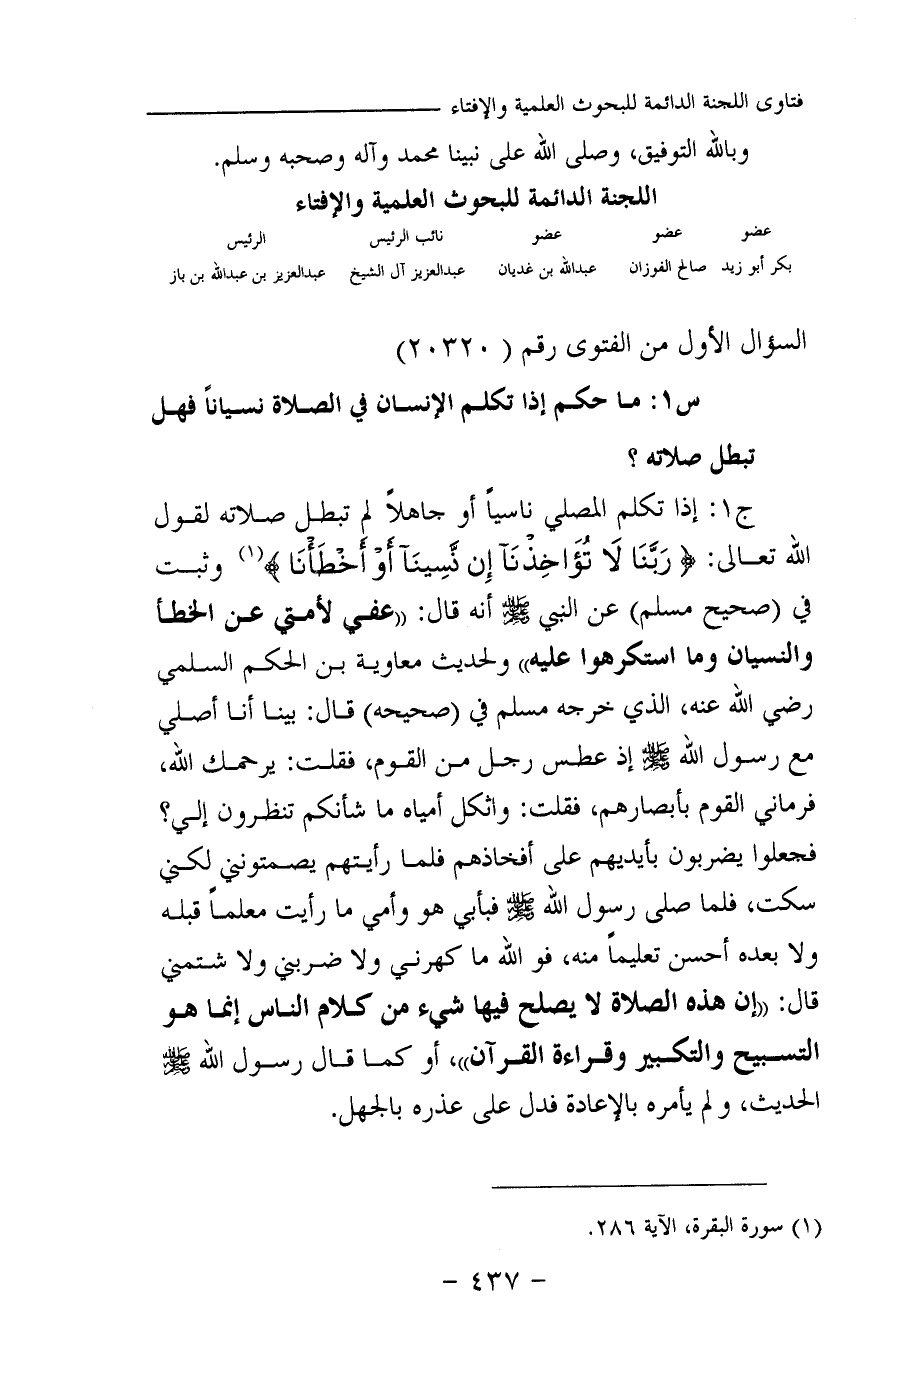 فتاوى اللجنة الدائمة للبحوث العلمية والإفتاء
وبالله التوفيق، وصلى الله على نبينا محمد وآله وصحبه وسلم.
اللجنة الدائمة للبحوث العلمية والإفتاء
عضو عضو عضو نائب الرئيس الرئيس
بكر أبو زيد صالح الفوزان عبدالله بن غديان عبدالعزيز آل الشيخ عبدالعزيز بن عبدالله بن باز
السؤال الأول من الفتوى رقم ( ٢٠٣٢٠)
س١: ما حكم إذا تكلم الإنسان في الصلاة نسياناً فهل
تبطل صلاته ؟
ج١: إذا تكلم المصلي ناسياً أو جاهلاً لم تبطل صلاته لقول
الله تعالى: ﴿ رَبَّنَا لَا تُؤَاخِذْنَآ إِن نَّسِينَآ أَوْ أَخْطَأْنَا ﴾(١) وثبت
في (صحيح مسلم) عن النبي ﷺ أنه قال: ((عفي لأمتي عن الخطأ
والنسيان وما استكرهوا عليه)) ولحديث معاوية بن الحكم السلمي
رضي الله عنه، الذي خرجه مسلم في (صحيحه) قال: بينا أنا أصلي
مع رسول الله ﷺ إذ عطس رجل من القوم، فقلت: يرحمك الله،
فرماني القوم بأبصارهم، فقلت: واثكل أمياه ما شأنكم تنظرون إلي؟
فجعلوا يضربون بأيديهم على أفخاذهم فلما رأيتهم يصمتونني لكني
سكت، فلما صلى رسول الله ﷺ فبأبي هو وأمي ما رأيت معلماً قبله
ولا بعده أحسن تعليماً منه، فو الله ما كهرني ولا ضربني ولا شتمني
قال: ((إن هذه الصلاة لا يصلح فيها شيء من كلام الناس إنما هو
التسبيح والتكبير وقراءة القرآن))، أو كما قال رسول الله ﷺ
الحديث، و لم يأمره بالإعادة فدل على عذره بالجهل.
(١) سورة البقرة، الآية ٢٨٦.
- ٤٣٧ -